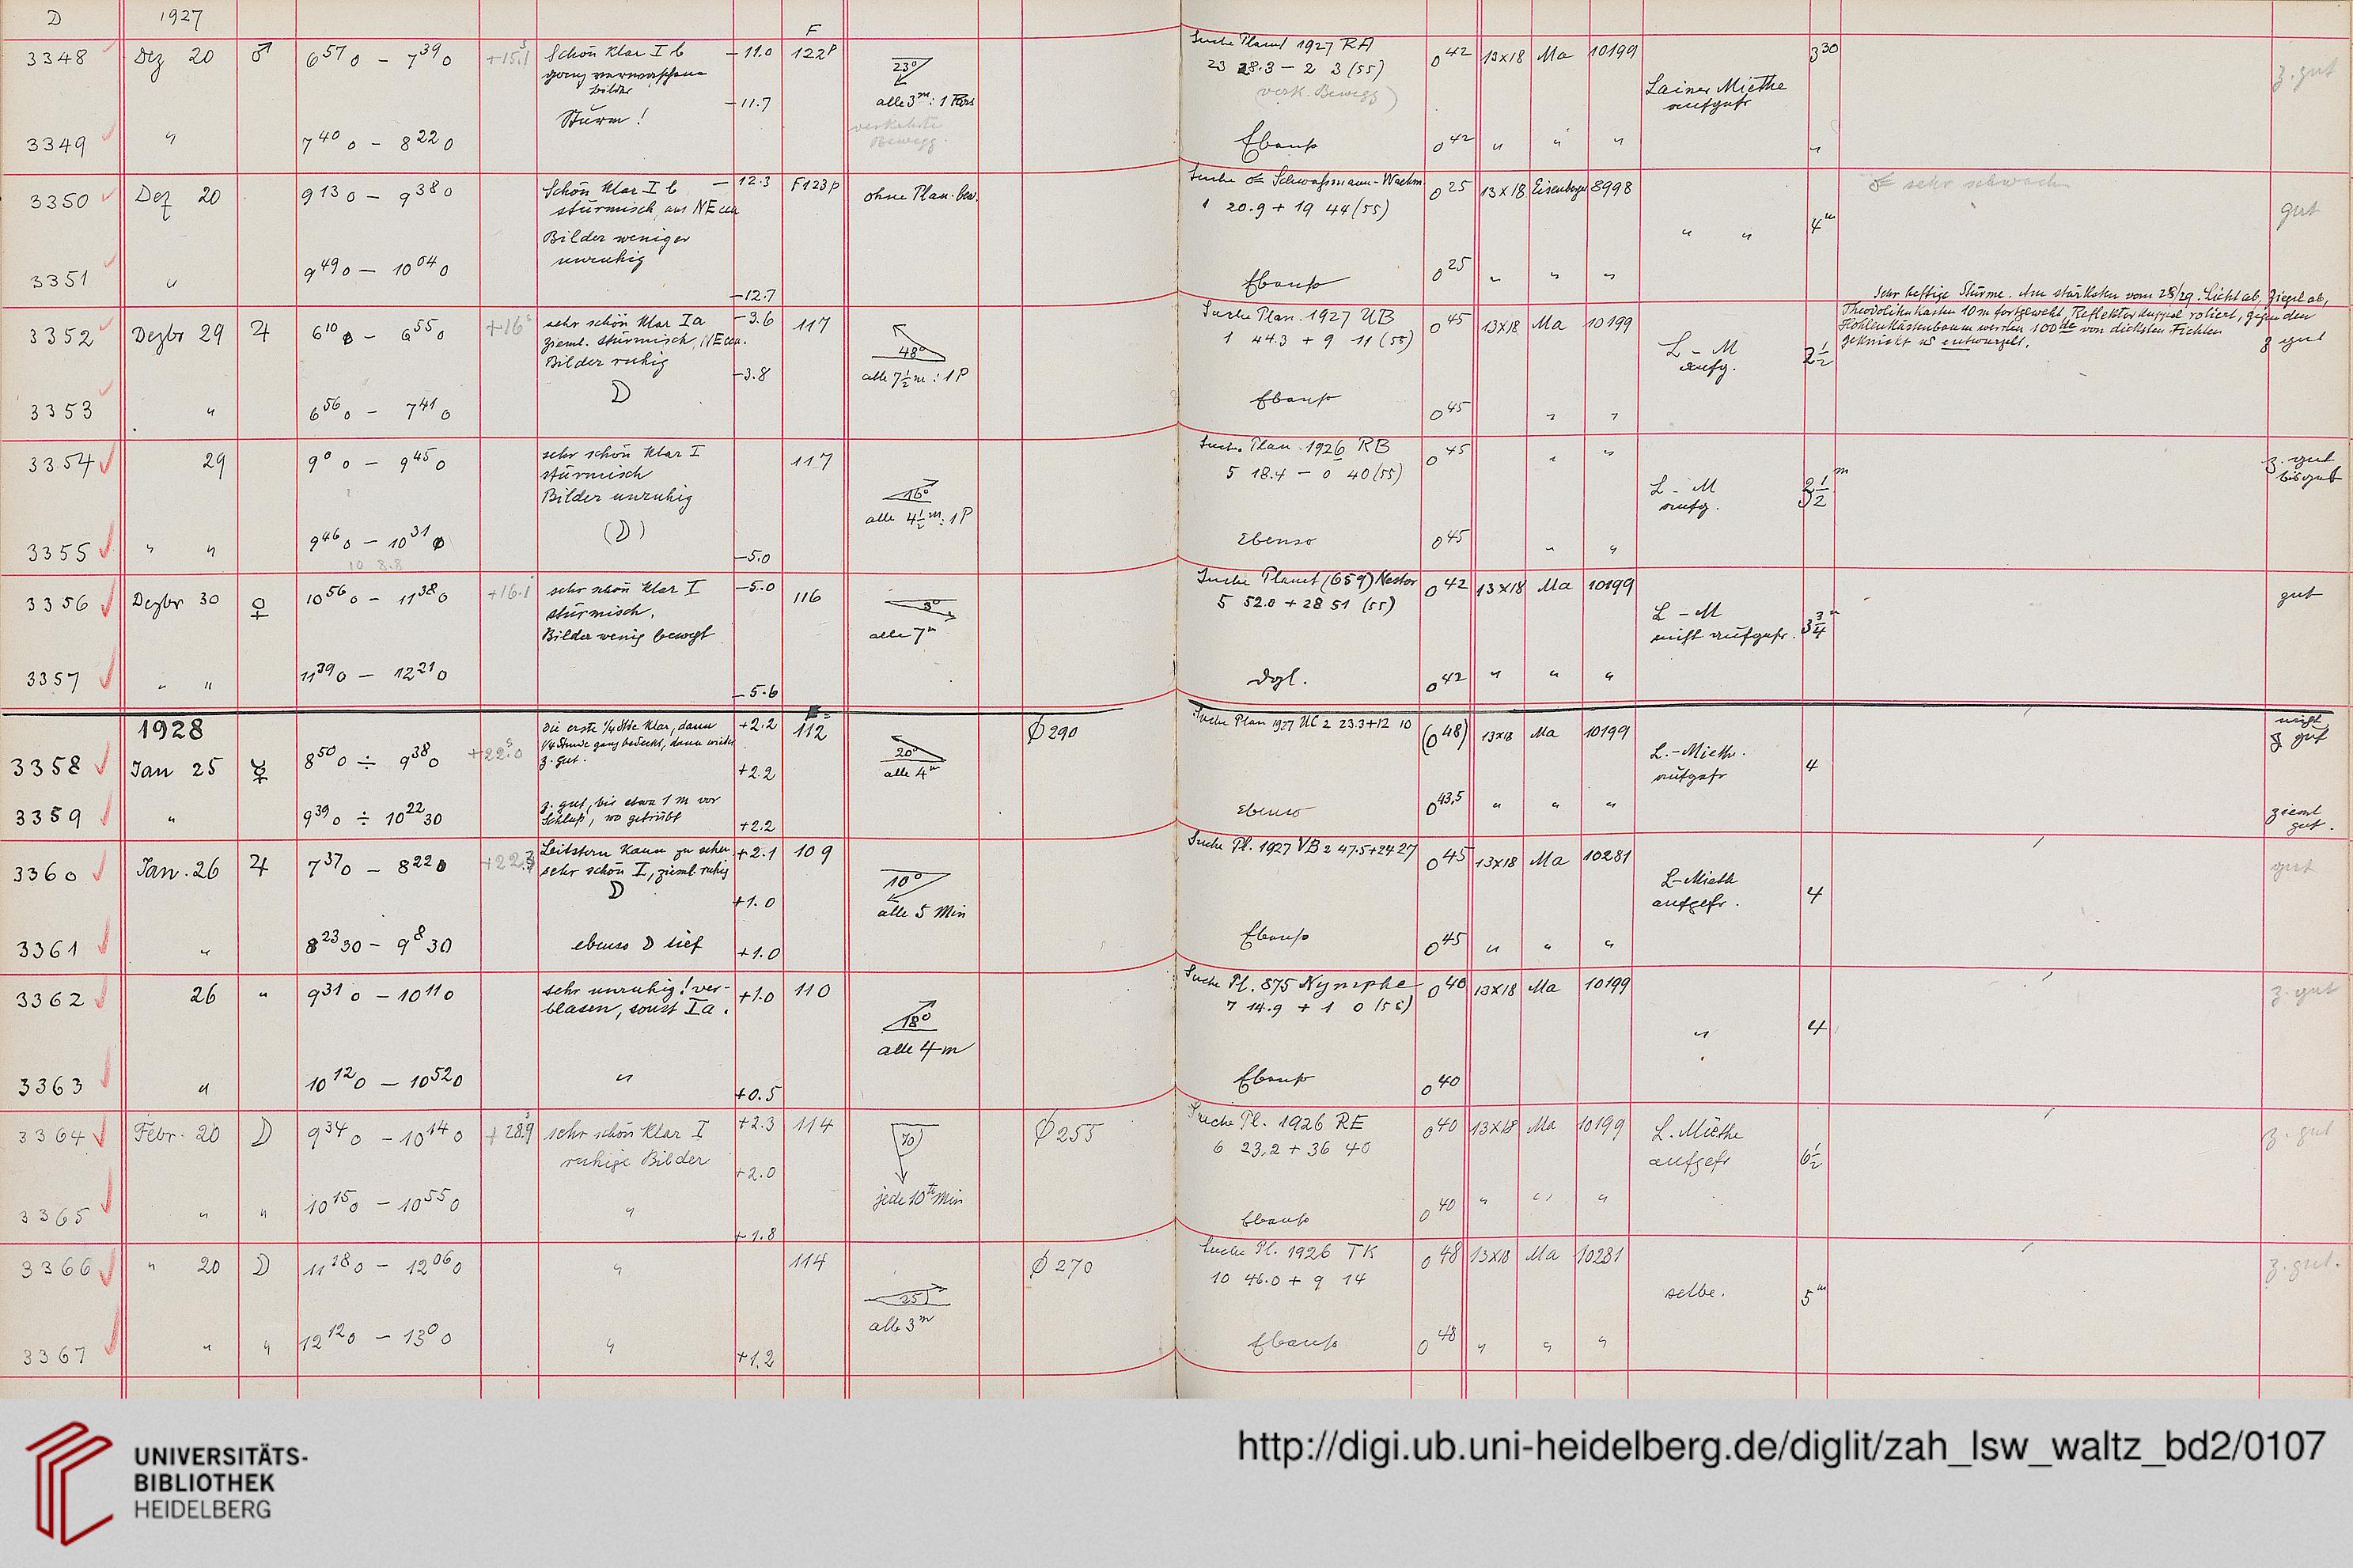 D 1927 F
3348 Dez 20 ♂ 6 57 0 – 7 39 0 +15.1 Schön klar I b – 11.0 122P 23° Suche Planet 1927 RA 0 42 13x18 Ma 10199 3 30 z. gut
ganz verwaschene 23 28.3 – 2 3 (55)
Bilder (verk. Bewegg) Lainer Miethe
Sturm! – 11.7 alle 3m: 1 Pars aufgefr
verkehrte
Bewegg.
3349 " 7 40 0 – 8 22 0 Ebenso 0 42 " " " "
3350 Dez 20 9 13 0 – 9 38 0 Schön klar I b – 12.3 F123P ohne Plan. bew. Suche Schwaßmann-Wachm. 0 25 13x18 8998 sehr schwach gut
stürmisch, aus NE 1 20.9 + 19 44 (55)
Bilder weniger " " 4m
unruhig
3351 " 9 49 0 – 10 04 0 – 12.7 Ebenso 0 25 " " "
Sehr heftige Stürme. Am stärksten vom 28/29. Licht ab, Ziegel ab,
Theodolithkasten 10 m fortgeweht, Reflektorkuppel rotiert, gegen den
Höhlenkästenbaum werden 100te von dicksten Fichten
geknickt u entwurzelt.
3352 Dezbr 29 ♃ 6 10 0 – 6 55 0 +16 sehr schön klar Ia – 3.6 117 48° Suche Plan. 1927 UB 0 45 13x18 Ma 10199 z gut
zieml. stürmisch, NE 1 44.3 + 9 11 (55) L – M 2 1/2
Bilder ruhig – 3.8 alle 7 1/2 m : 1 P aufg.
D
3353 " 6 56 0 – 7 41 0 Ebenso 0 45 " "
3354 29 9 0 0 – 9 45 0 sehr schön klar I 117 Suche Plan. 1926 RB 0 45 " " z. gut
stürmisch 16° 5 18.4 – 0 40 (55) bis gut
Bilder unruhig alle 4 1/2 m: 1 P L – M aufg.
(D)
3355 " " 9 46 0 – 10 31 0 – 5.0 Ebenso 0 45 " "
10 8.8
3356 Dezbr 30 ♀ 10 56 0 – 11 38 0 +16.1 sehr schön klar I – 5.0 116 8° Suche Planet (659) Nestor 0 42 13x18 Ma 10199 gut
stürmisch. 5 52.0 + 28 51 (55) L – M
Bilder wenig bewegt alle 7m nicht aufgefr. 3 3/4 m
3357 " " 11 39 0 – 12 21 0 – 5.6 dgl. 0 42 " " "
1928 Die erste 1/4 Stde klar, dann +2.2 112 Ø 290 Suche Plan 1927 UC 2 23.3 + 12 10 (0 48) 13x18 Ma 10199 nicht
3358 Jan 25 ☿ 8 50 0 ÷ 9 38 0 +22.0 1/4 Stunde ganz bedeckt, dann wieder 20° L.-Mieth. 4 z gut
z. gut. +2.2 alle 4m aufgefr
3359 " 9 39 0 ÷ 10 22 30 z. gut, bis etwa 1 m vor +2.2 Ebenso 0 43.5 " " " zieml
Schluß, wo getrübt gut.
3360 Jan. 26 ♃ 7 37 0 – 8 22 0 +22.3 Leitstern kaum zu sehen +2.1 109 10° Suche Pl. 1927 VB 2 47.5 + 24 27 0 45 13x18 Ma 10281 gut
sehr schön I, zieml. ruhig L-Mieth
D +1.0 alle 5 Min aufgefr. 4
3361 " 8 23 30 – 9 8 30 ebenso D tief +1.0 Ebenso 0 45 " " "
3362 26 " 9 31 0 – 10 11 0 sehr unruhig! ver- +1.0 110 Suche Pl. 875 Nymphe 0 40 13x18 Ma 10199 z. gut
blasen, sonst Ia. 18° 7 14.9 + 1 0 (55)
alle 4 m " 4
3363 " 10 12 0 – 10 52 0 " +0.5 Ebenso 0 40
3364 Febr. 20 D 9 34 0 – 10 14 0 +28.9 sehr schön klar I +2.3 114 70 Ø 255 Suche Pl. 1926 RE 0 40 13x18 Ma 10199 L. Miethe z. gut
ruhige Bilder +2.0 6 23.2 + 36 40 aufgefr 6 1/2
3365 " " 10 15 0 – 10 55 0 " +1.8 jede 10te Min Ebenso 0 40 " " "
3366 " 20 D 11 18 0 – 12 06 0 " 114 25 Ø 270 Suche Pl. 1926 TK 0 48 13x18 Ma 10281 z. gut.
10 46.0 + 9 14 selbe. 5m
alle 3m
3367 " " 12 12 0 – 13 0 0 " +1.2 Ebenso 0 48 " " "
UNIVERSITÄTS-
BIBLIOTHEK
HEIDELBERG
http://digi.ub.uni-heidelberg.de/diglit/zah_lsw_waltz_bd2/0107